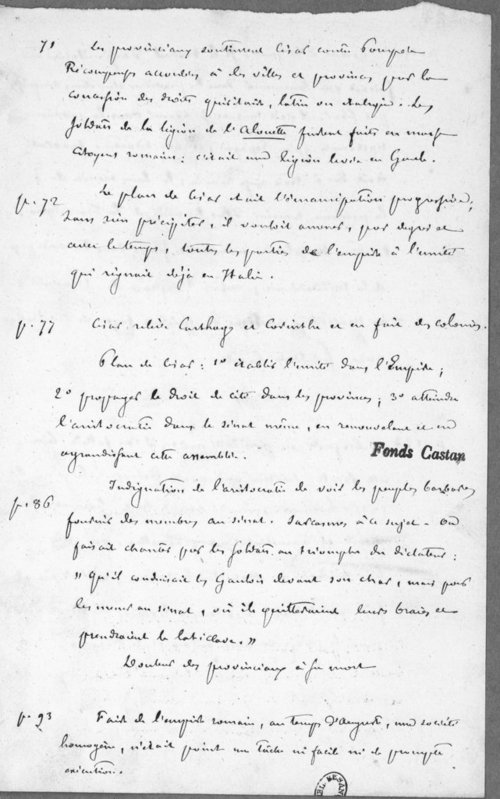 71 Les provinciaux soutinrent César contre Pompée
Récompenses accordées à des villes et provinces par la
concession des droits quiritaire, latin ou italique. Les
soldats de la légion de l'Alouette furent faits en masse
citoyens romains : c'était une légion levée en Gaule.
p. 72 Le plan de César était l'émancipation progressive ;
sans rien précipiter, il voulait amener, par degrés et
avec le temps, toutes les parties de l'empire à l'unité
qui régnait déjà en Italie.
p. 77 César relève Carthage et Corinthe et en fait des colonies.
Plan de César : 1º établir l'unité dans l'Empire ;
2º propager le droit de cité dans les provinces ; 3º atteindre
l'aristocratie dans le sénat même, en renouvelant et en
agrandissant cette assemblée.
Fonds Castan
p. 86 Indignation de l'aristocratie de voir les peuples barbares
fournir des membres au sénat. Sarcasmes à ce sujet - On
faisait chanter par les soldats au triomphe du dictateur :
" Qu'il conduisait les Gaulois devant son char, mais pour
les mener au sénat, où ils quitteraient leurs braies et
prendraient le laticlave. "
Douleur des provinciaux à sa mort
p. 93 Faire de l'empire romain, au temps d'Auguste, une société
homogène, n'était point une tâche ni facile ni de prompte
exécution.